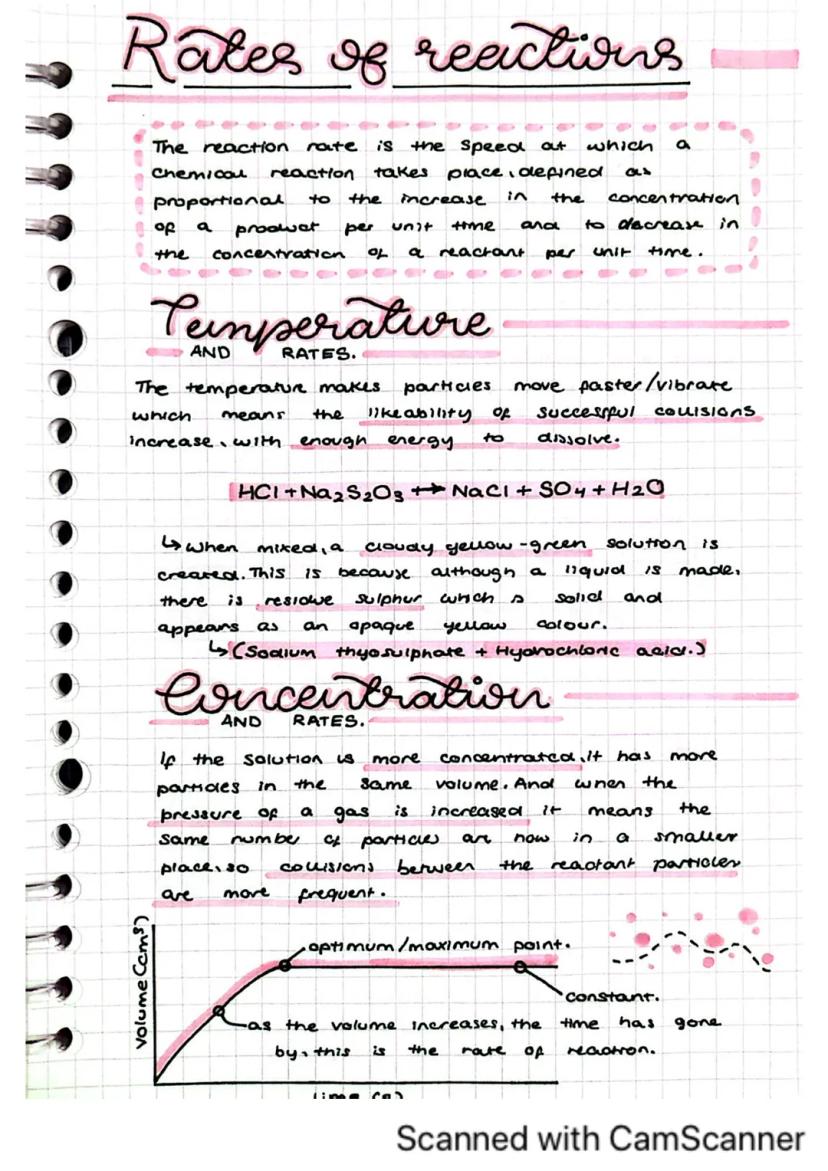 Rates of reactions
The reaction rate is the speed at which a
chemical reaction takes place, defined as
proportional to the increase in the concentration
of a product per unit time and to decrease in
the concentration of a reactant per unit time.
Temperature
AND RATES.
The temperature makes particles move faster/vibrate
which means the likeability of successful collisions
increase, with enough energy to dissolve.
HCl + Na2S2O3 ↔ NaCl + SO4 + H2O
↳ when mixed, a cloudy yellow-green solution is
created. This is because although a liquid is made,
there is residue sulphur which is solid and
appears as an opaque yellow colour.
↳ (Sodium thyosulphate + Hydrochloric acid.)
Concentration
AND RATES.
If the solution is more concentrated, it has more
particles in the same volume. And when the
pressure of a gas is increased it means the
same number of particles are now in a smaller
place, so collisions between the reactant particles
are more frequent.
Volume (cm³)
optimum/maximum point.
constant.
as the volume increases, the time has gone
by, this is the rate of reaction.
time (s)
Scanned with CamScanner